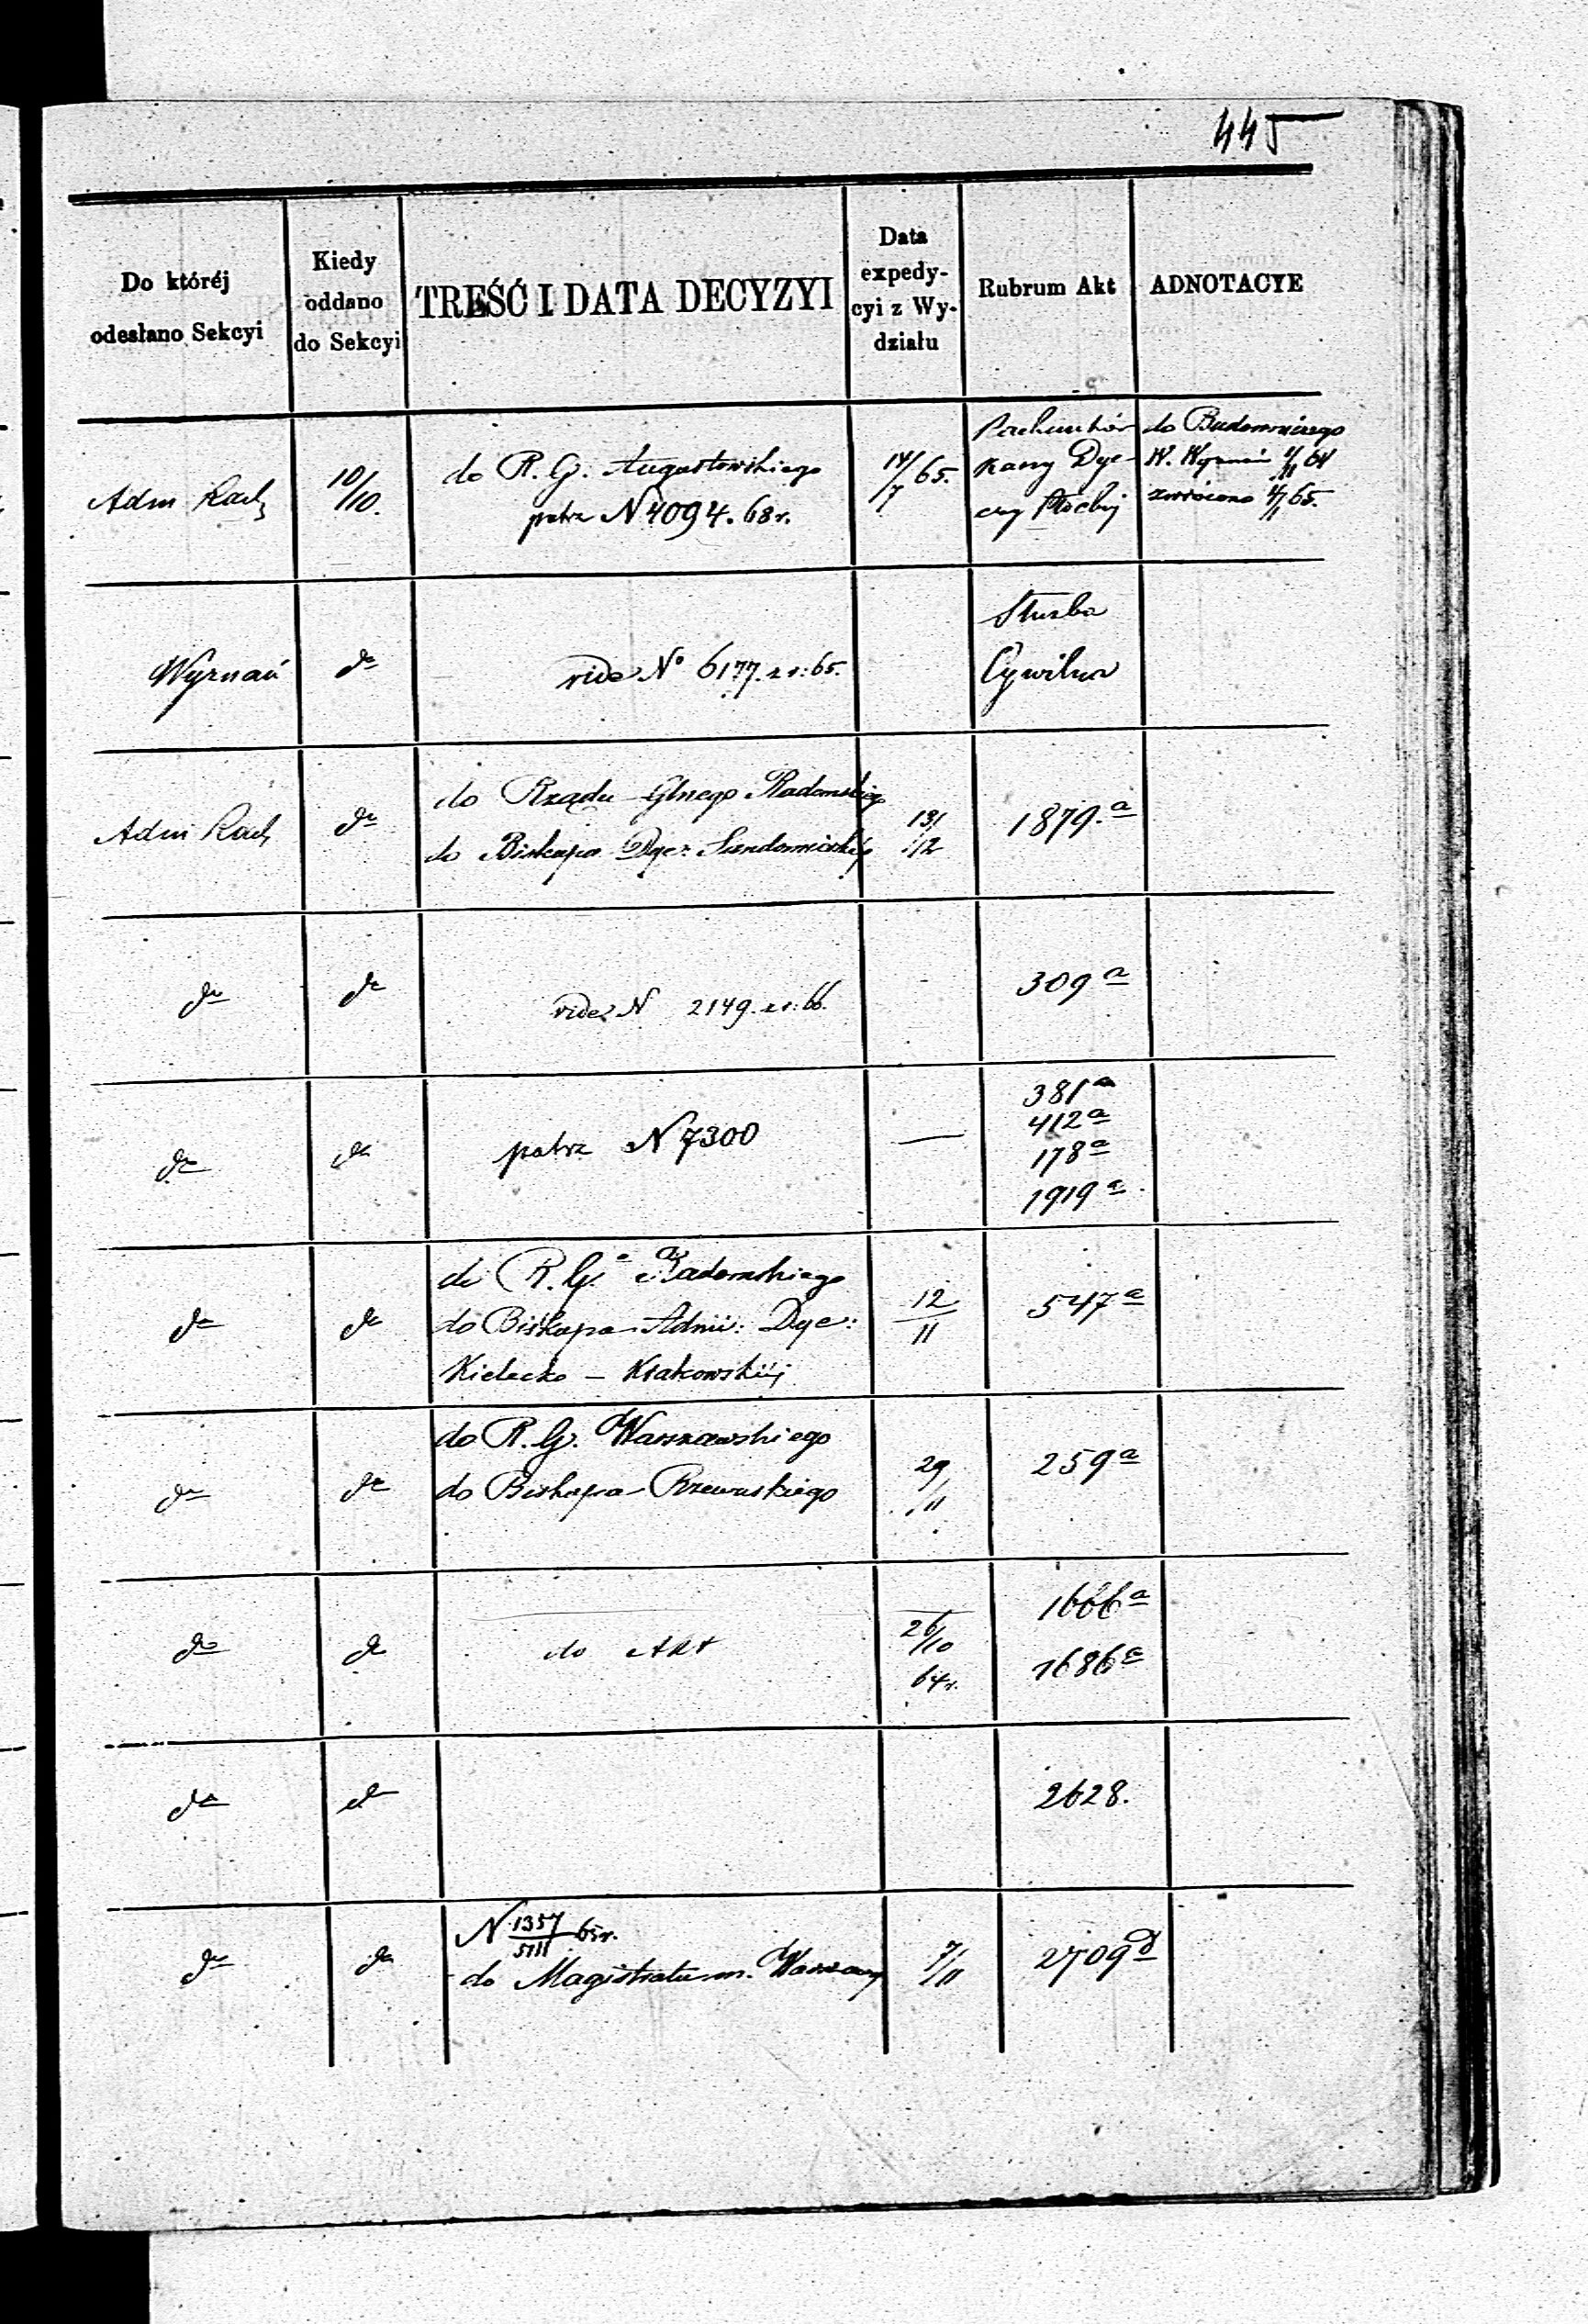 445
Do któréj
odesłano Sekcyi
Kiedy
oddano
do Sekcyi
TREŚĆ I DATA DECYZYI
Data
expedy-
cyi z Wy-
działu
Rubrum Akt
ADNOTACYE
Adm Rach
10/10.
do R. G. Augustowskiego
patrz N 4094. 68 r.
14/7 65.
Rachunków
Kassy Dye-
cezyi Płockiej
do Budowniczego
W. Wyznań 64
zwrócono 65.
Wyznań
do
vide No 6177. z r: 65.
Służba
Cywilna
Adm Rach
do
do Rządu Glnego Radomskiego
do Biskupa Dyec: Sandomierskiej
13/12
1879.a
do
do
vide N 2149. z r: 66.
309 a
do
do
patrz N 7300
—
381 a
412 a
178 a
1919 a
do
do
do R. G. Radomskiego
do Biskupa Admi: Dye:
Kielecko – Krakowskiéj
12/11
547 a
do
do
do R. G. Warszawskiego
do Biskupa Rzewuskiego
29/11
259 a
do
do
do Akt
26/10
64 r.
1666 a
1686 a
do
do
2628.
do
do
N 1357/5111 65 r.
do Magistratu m. Warszawy
7/11
2709 d